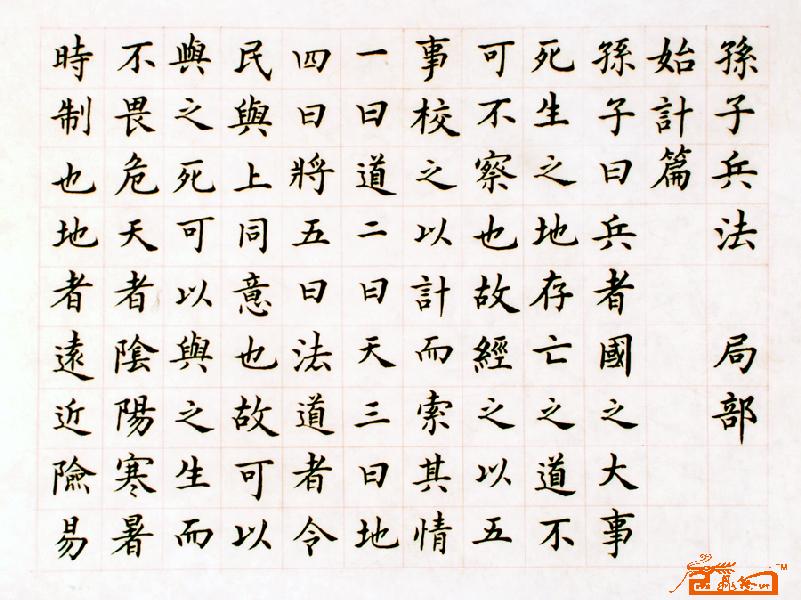 孫子兵法 局部
始計篇
孫子曰兵者國之大事
死生之地存亡之道不
可不察也故經之以五
事校之以計而索其情
一曰道二曰天三曰地
四曰將五曰法道者令
民與上同意也故可以
與之死可以與之生而
不畏危天者陰陽寒暑
時制也地者遠近險易
TM